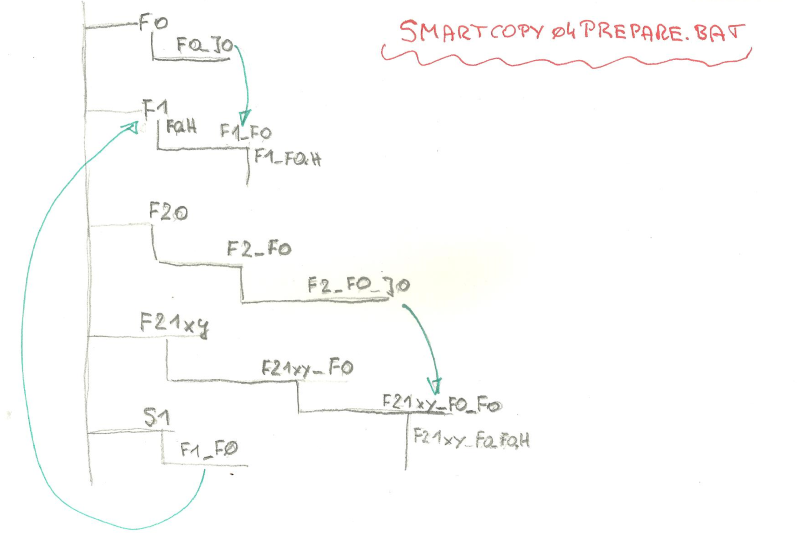 SMARTCOPY04PREPARE.BAT
F0
F0_J0
F1
F0H F1_F0
F1_F0H
F20
F2_F0
F2_F0_J0
F21xy
F21xy_F0
F21xy_F0_F0
S1
F21xy_F0F0H
F1_F0